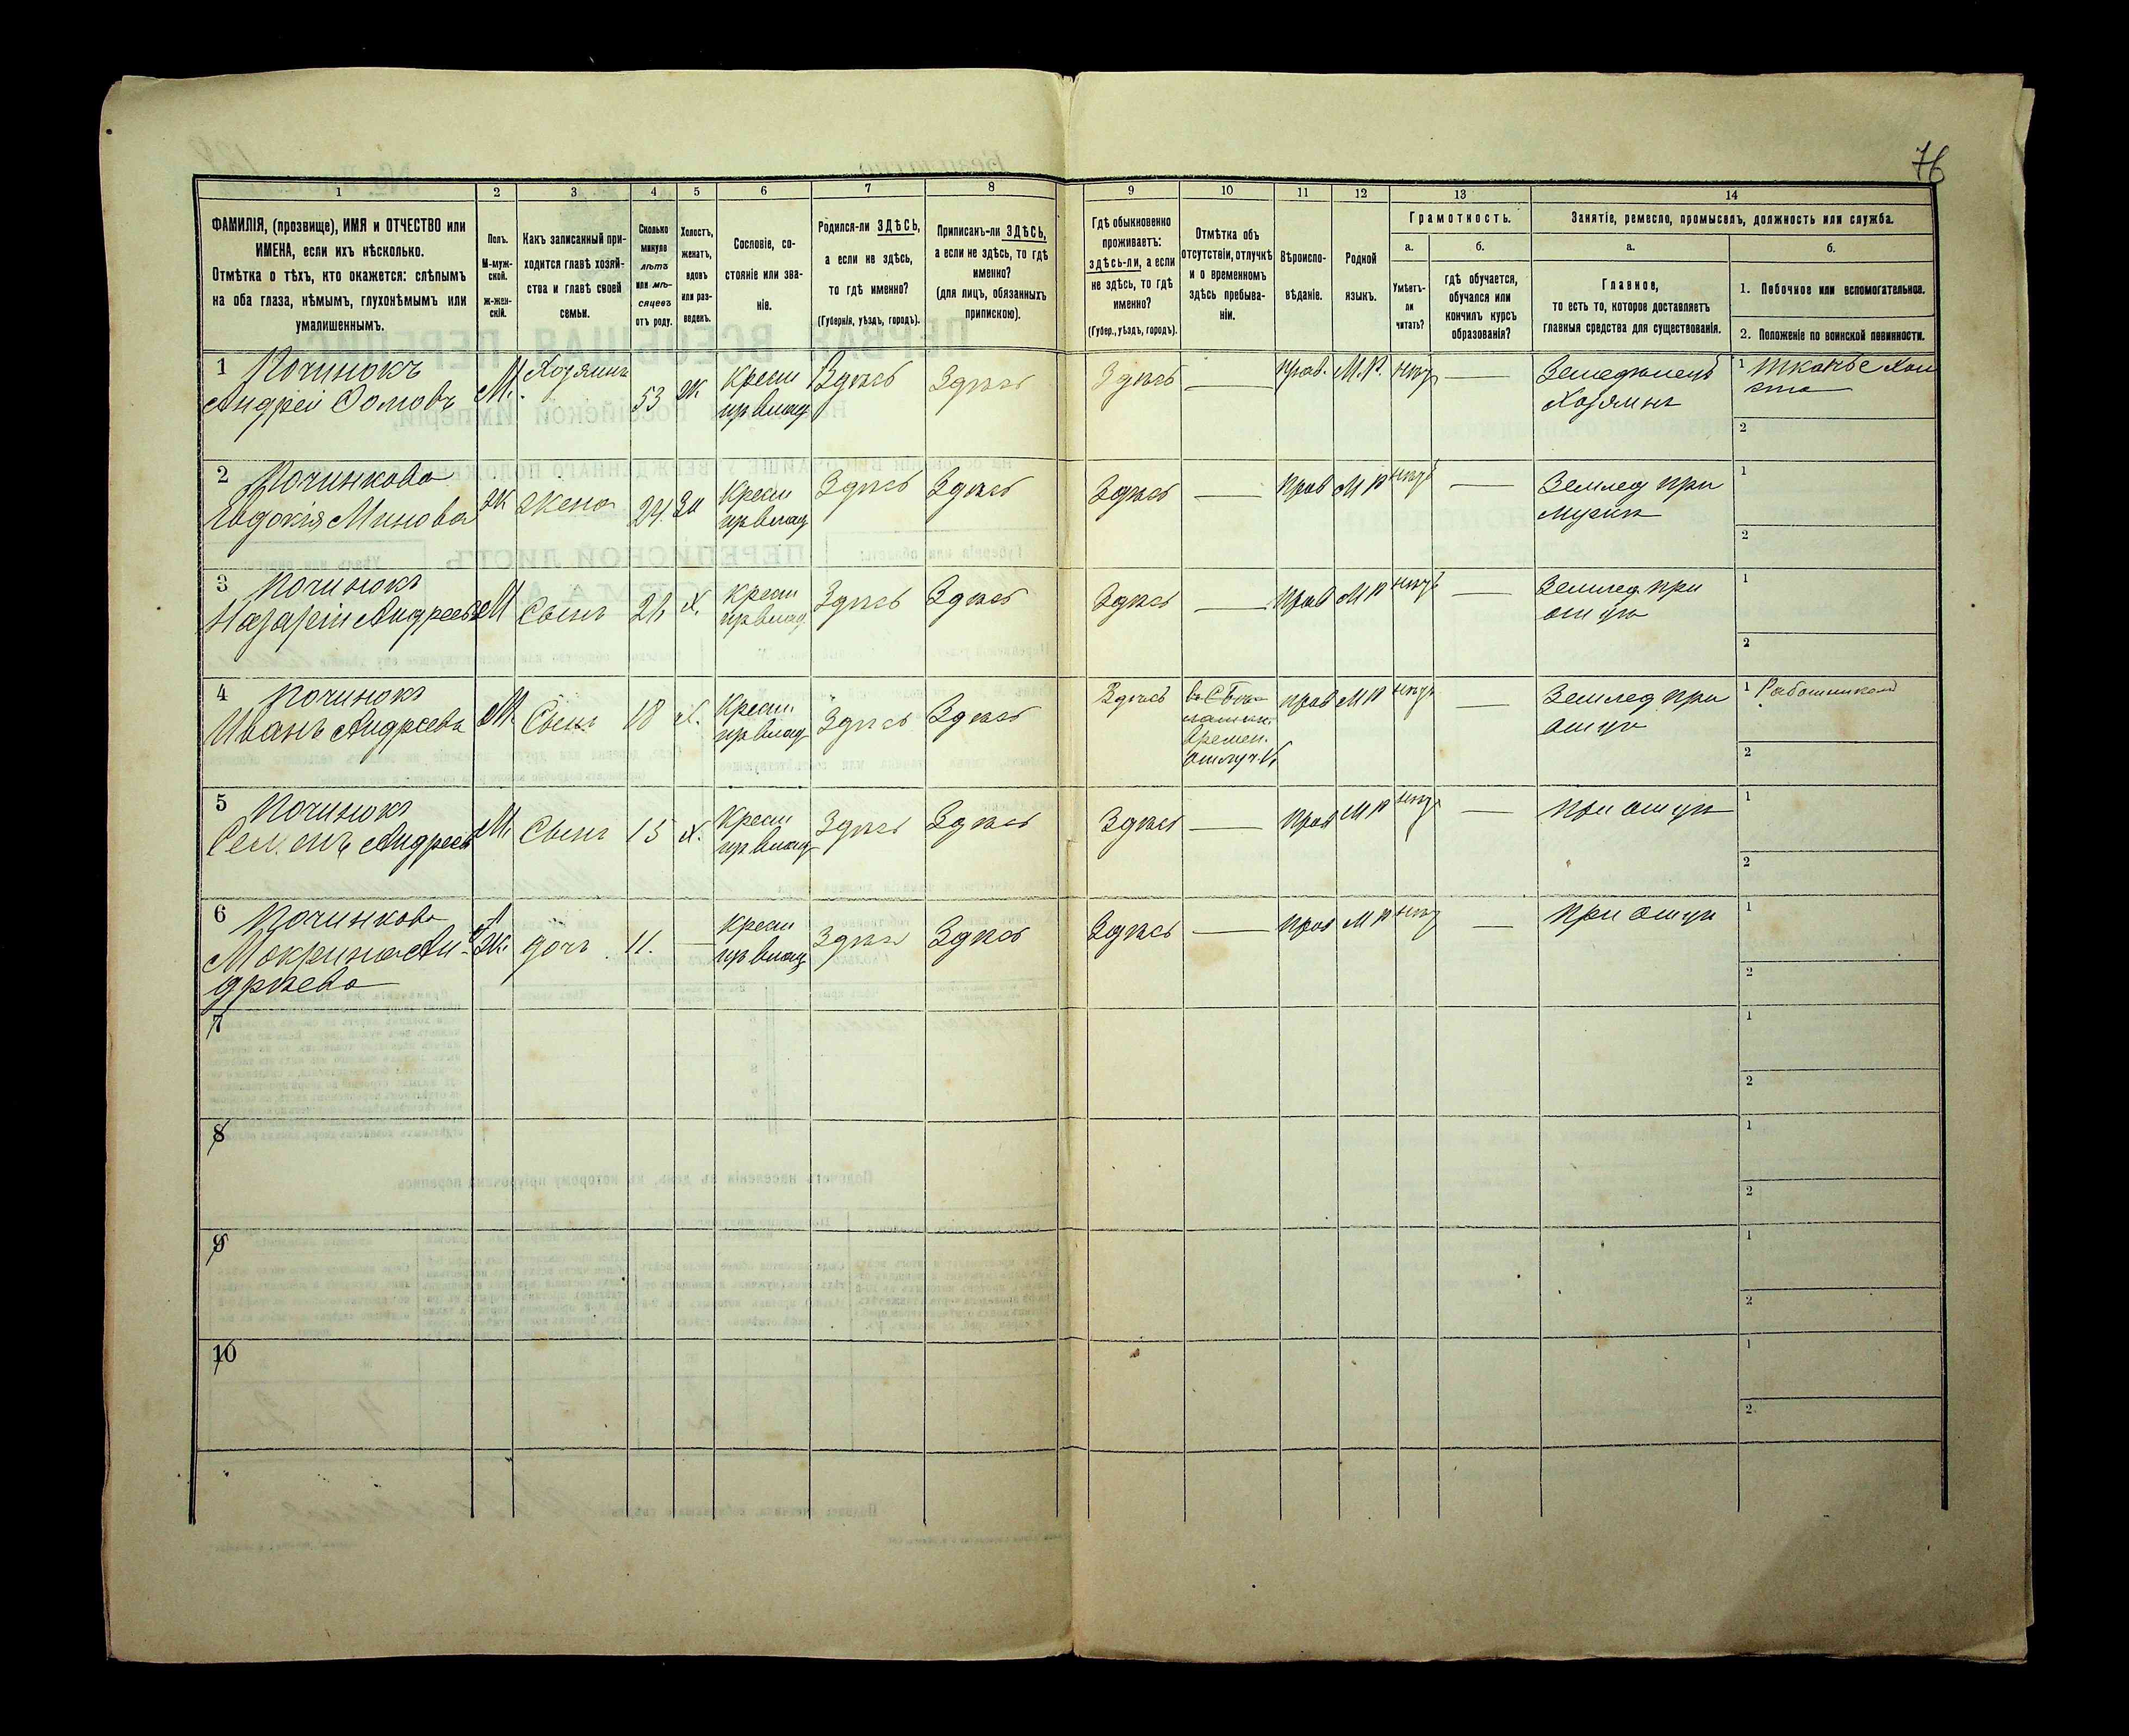 76
1
2
3
4
5
6
7
8
9
10
11
12
13
14
ФАМИЛІЯ, (прозвище), ИМЯ и ОТЧЕСТВО или
ИМЕНА, если ихъ нѣсколько.
Отмѣтка о тѣхъ, кто окажется: слѣпымъ
на оба глаза, нѣмымъ, глухонѣмымъ или
умалишеннымъ.
Полъ.
М-муж-
ской.
ж-жен-
скій.
Какъ записанный при-
ходится главѣ хозяй-
ства и главѣ своей
семьи.
Сколько
минуло
лѣтъ
или мѣ-
сяцевъ
отъ роду.
Холостъ,
женатъ,
вдовъ
или раз-
веденъ.
Сословіе, со-
стояніе или зва-
ніе.
Родился-ли ЗДѢСЬ,
а если не здѣсь,
то гдѣ именно?
(Губернія, уѣздъ, городъ).
Приписанъ-ли ЗДѢСЬ,
а если не здѣсь, то гдѣ
именно?
(для лицъ, обязанныхъ
припискою).
Гдѣ обыкновенно
проживаетъ:
здѣсь-ли, а если
не здѣсь, то гдѣ
именно?
(Губер., уѣздъ, городъ).
Отмѣтка объ
отсутствіи, отлучкѣ
и о временномъ
здѣсь пребыва-
ніи.
Вѣроиспо-
вѣданіе.
Родной
языкъ.
Грамотность.
а.
Умѣетъ-
ли
читать?
б.
гдѣ обучается,
обучался или
кончилъ курсъ
образованія?
Занятіе, ремесло, промыселъ, должность или служба.
а.
Главное,
то есть то, которое доставляетъ
главныя средства для существованія.
б.
1. Побочное или вспомогательное.
2. Положеніе по воинской повинности.
1 Починокъ
Андрей Фомовъ
М.
Хозяинъ
53
Ж.
Крест
из влад
Здѣсь
Здѣсь
Здѣсь
прав.
М.Р.
нѣтъ
Земледѣлецъ
Хозяинъ
1 Тканье хол
ста
2
2 Починкова
Евдокія Минова
Ж
Жена
Крест
из влад
Здѣсь
Здѣсь
Здѣсь
прав
М Р
нѣтъ
Землед при
мужѣ
1
2
3 Починокъ
Назарій Андреевъ
М
Сынъ
Х.
крест
из влад
Здѣсь
Здѣсь
Здѣсь
прав
М Р
нѣтъ
Землед при
отцѣ
1
2
4 Починокъ
Иванъ Андреевъ
М.
Сынъ
18
Х.
Крест.
из влад
Здѣсь
Здѣсь
Здѣсь
времен.
отлучкѣ
прав
М Р
нѣтъ
Землед при
отцѣ
1 Работникомъ
2
5 Починокъ
Семенъ Андреев
М.
Сынъ
15
Х.
Крест
из влад
Здѣсь
Здѣсь
Здѣсь
прав
М Р
нѣтъ
при отцѣ
1
2
6 Починкова
Макрина Ан-
дрѣева
Ж.
дочь
11.
крест
из влад
Здѣсь
Здѣсь
Здѣсь
прав
М Р
нѣтъ
при отцѣ
1
2
7
1
2
8
1
2
9
1
2
10
1
2